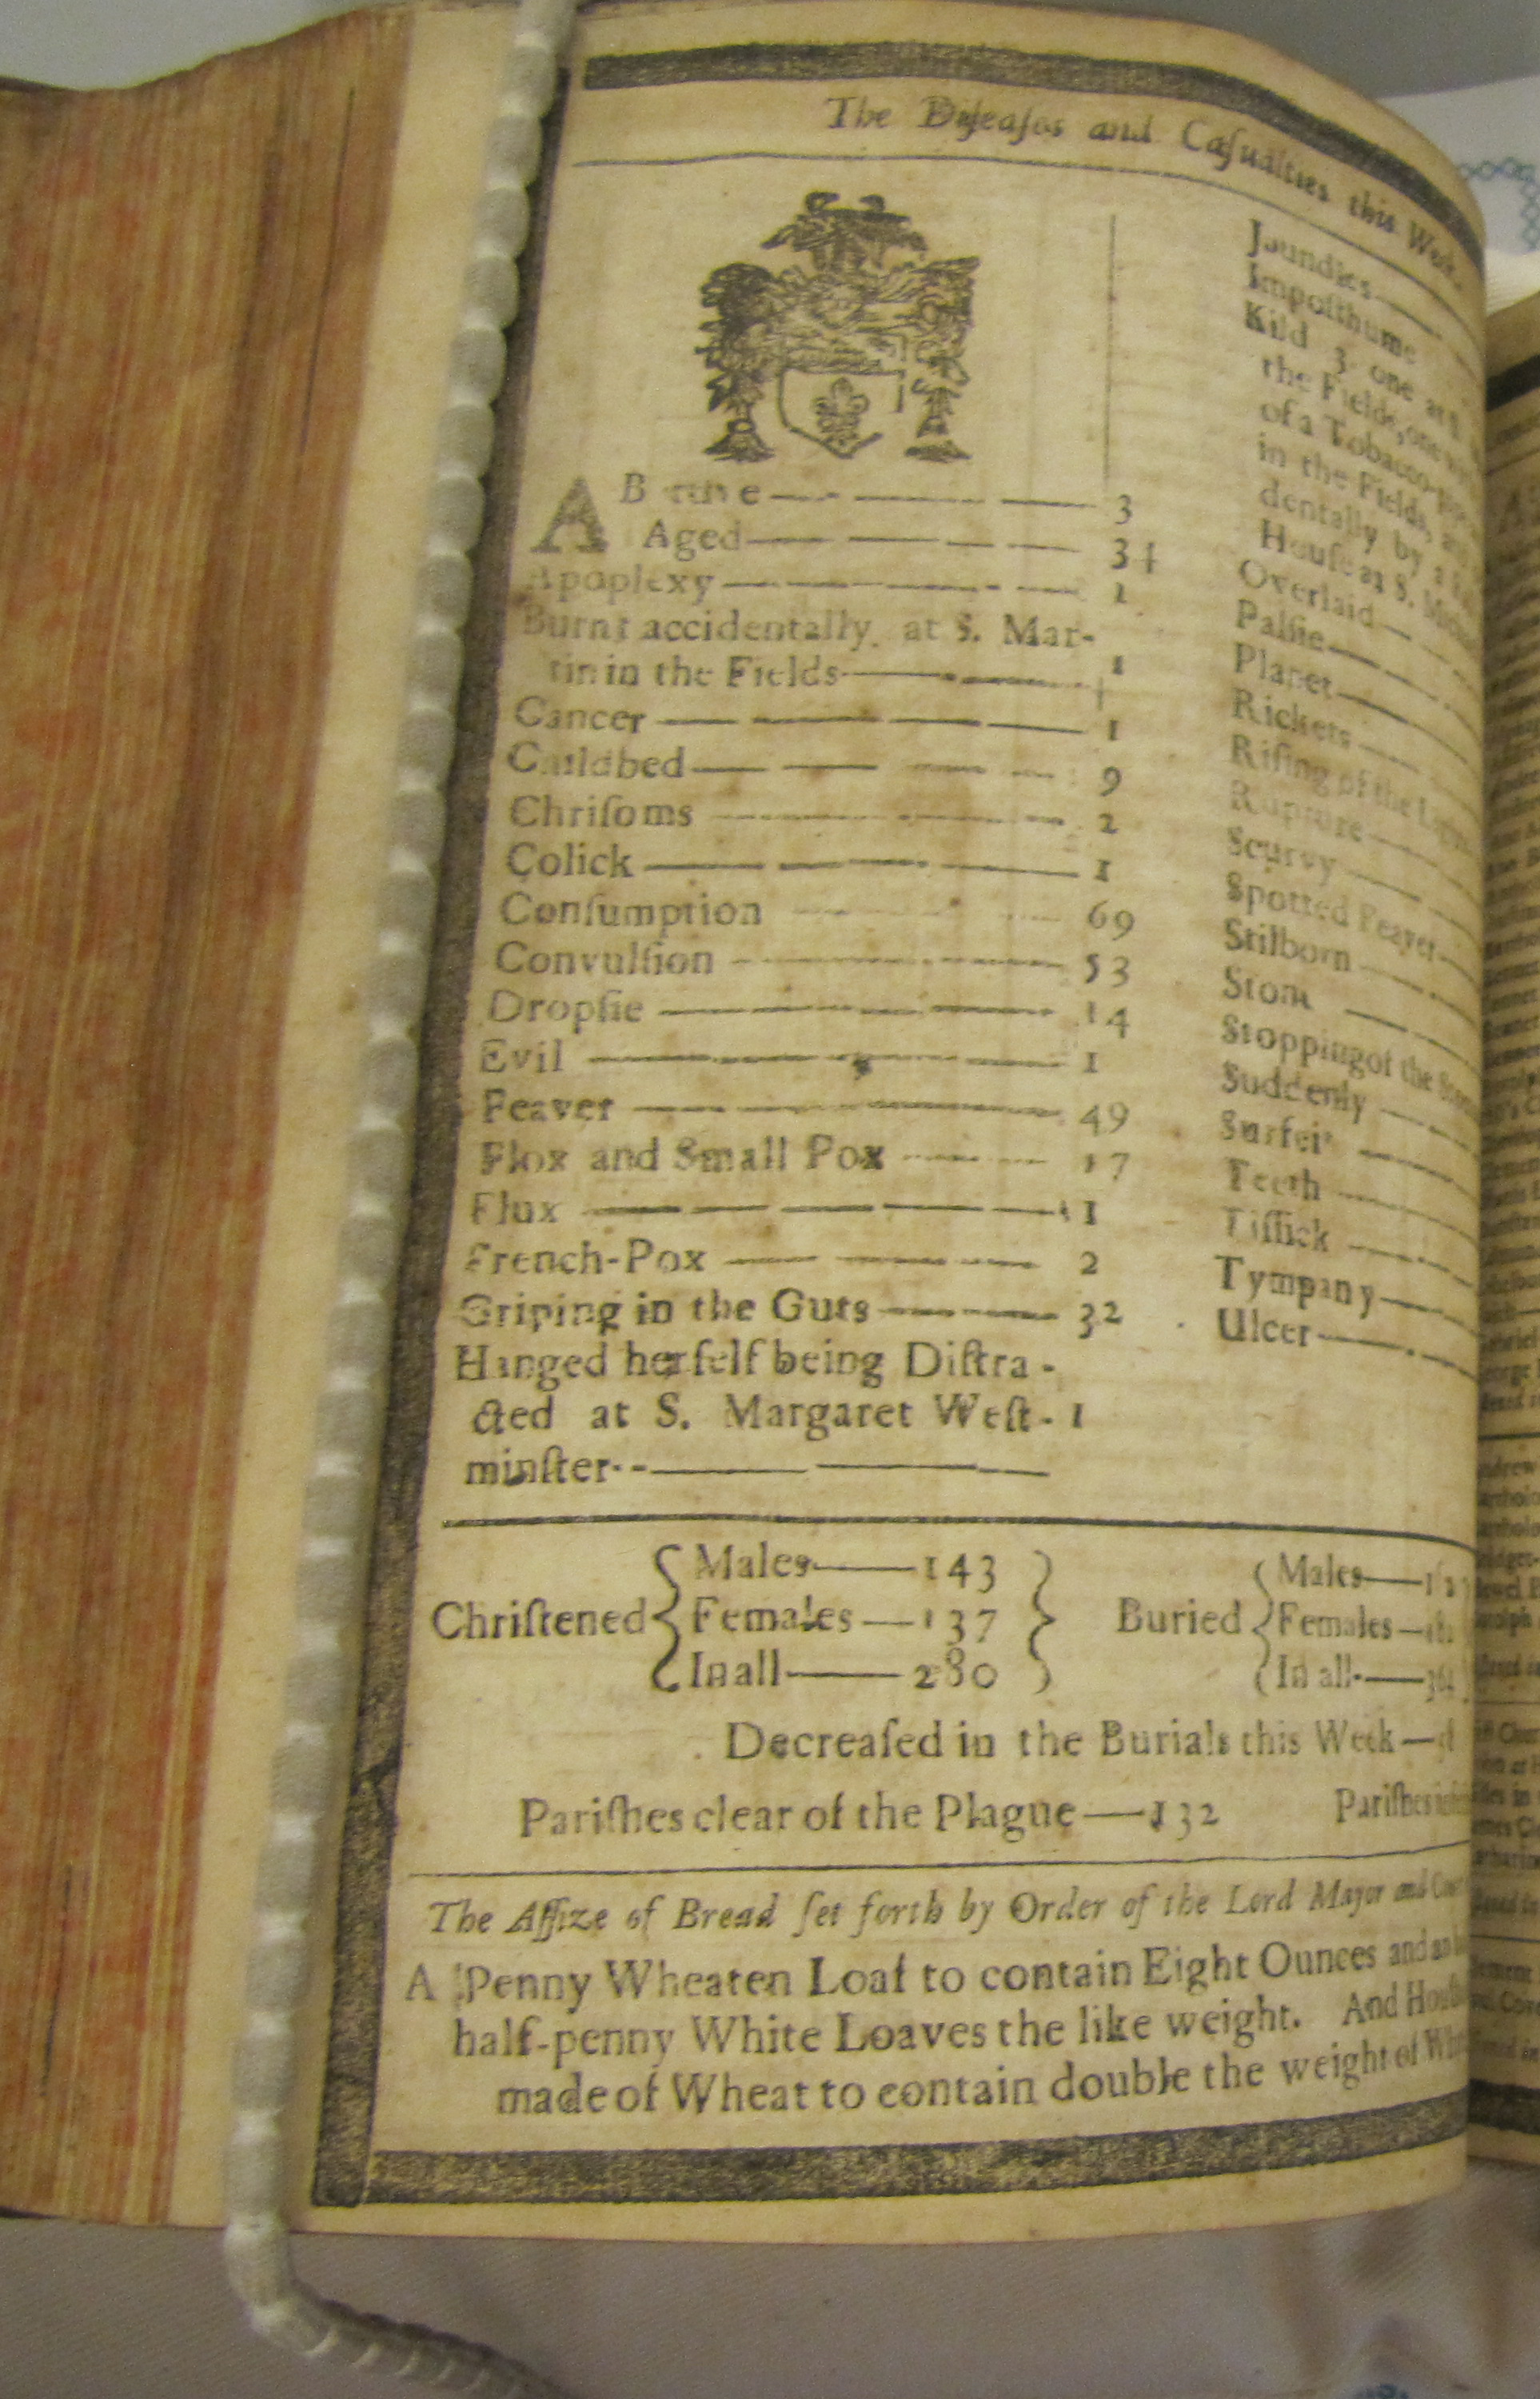 The Diſeaſes and Caſualties this Week.
ABortive 3
Aged 34
Apoplexy 1
Burnt accidentally at S. Mar-
tin in the Fields 1
Cancer 1
Childbed 9
Chriſoms 2
Colick 1
Conſumption 69
Convulſion 53
Dropſie 14
Evil 1
Feaver 49
Flox and Small Pox 17
Flux 1
French-Pox 2
Griping in the Guts 32
Hanged herſelf being Diſtra-
cted at S. Margaret Weſt- 1
minſter
Jaundies
Impoſthume
Kild 3 one at S.
the Fields, one
of a Tobacco-pipe
in the Fields,
dentally by a
Houſe at S.
Overlaid
Palſie
Planet
Rickets
Riſing of the Lights
Rupture
Scurvy
Spotted Feaver
Stilborn
Stone
Stopping of the
Suddenly
Surfeit
Teeth
Tiſſick
Tympany
Ulcer
Chriſtened
Males 143
Females 137
In all 280
Buried
Males
Females
In all
Decreaſed in the Burials this Week
Pariſhes clear of the Plague 132 Pariſhes
The Aſſize of Bread ſet forth by Order of the Lord Mayor and
A Penny Wheaten Loaf to contain Eight Ounces and
half-penny White Loaves the like weight. And
made of Wheat to contain double the weight of